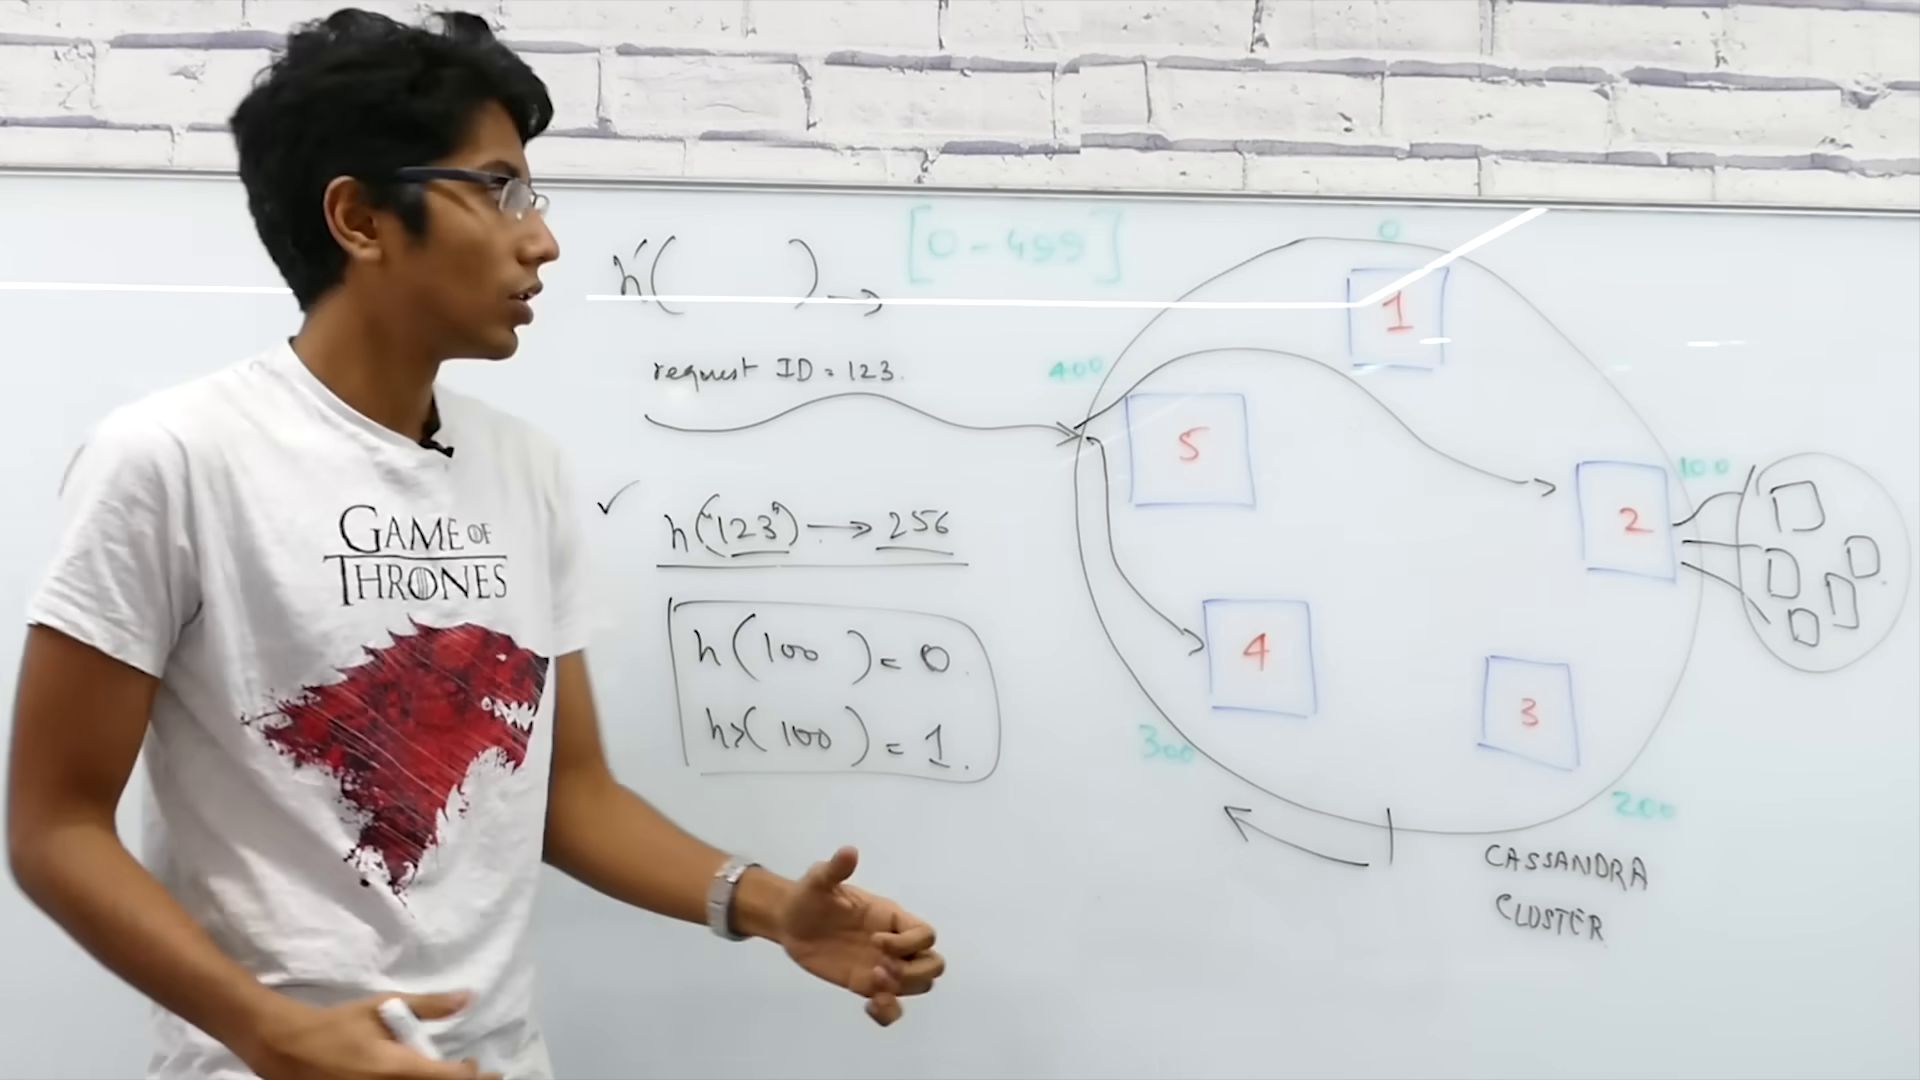 GAME OF
THRONES
h'( ) → [0-499]
request ID = 123.
✓ h("123") → 256
h(100) = 0
h>(100) = 1.
0
1
400
5
100
2
4
3
300
200
CASSANDRA
CLUSTER